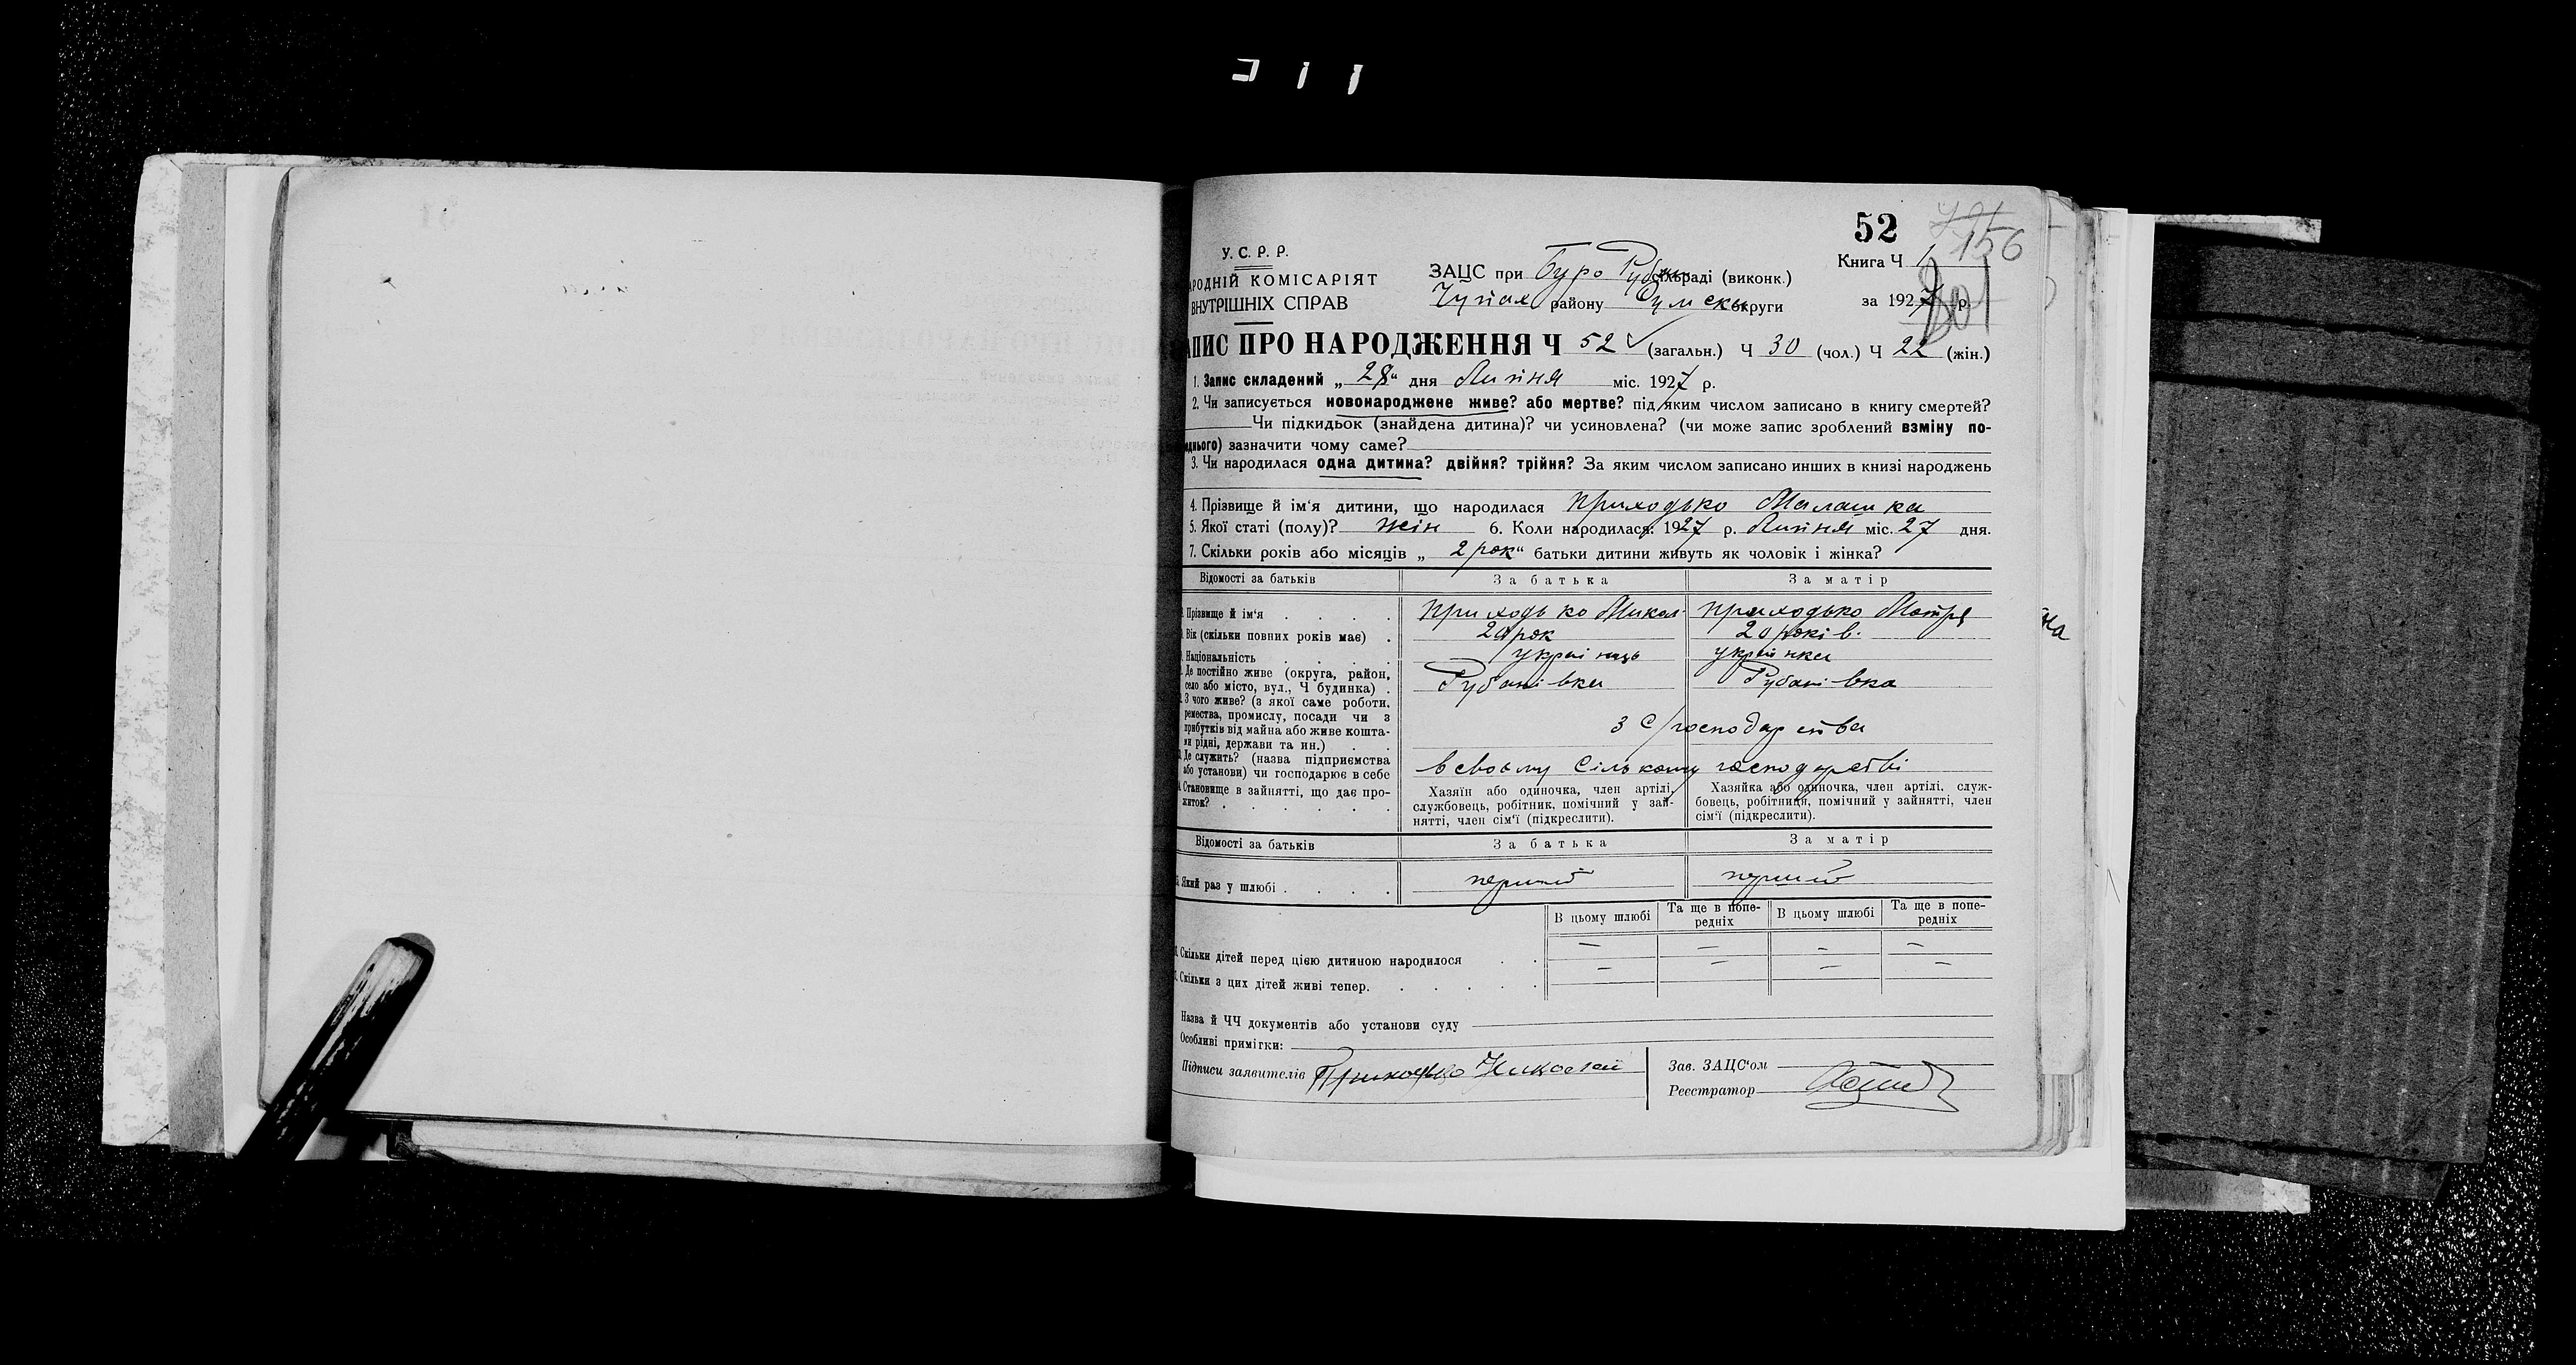 52
156
У. С. Р. Р.
АРОДНІЙ КОМІСАРІЯТ
ВНУТРІШНІХ СПРАВ
ЗАЦС при Бюро Руб сільраді (виконк.)
Чупах району Сумськ округи
Книга Ч 1
за 1927 р.
АПИС ПРО НАРОДЖЕННЯ Ч 52 (загальн.) Ч 30 (чол.) Ч 22 (жін.)
1. Запис складений „ 28 “ дня Липня міс. 1927 р.
2. Чи записується новонароджене живе? або мертве? під яким числом записано в книгу смертей?
Чи підкидьок (знайдена дитина)? чи усиновлена? (чи може запис зроблений взміну по-
еднього) зазначити чому саме?
3. Чи народилася одна дитина? двійня? трійня? За яким числом записано инших в книзі народжень
4. Прізвище й ім‘я дитини, що народилася Приходько Малашка
5. Якої статі (полу)? жін 6. Коли народилася: 1927 р. Липня міс. 27 дня.
7. Скільки років або місяців „ 2 рок “ батьки дитини живуть як чоловік і жінка?
Відомості за батьків За батька За матір
Прізвище й ім‘я Приходько Микол Приходько Мотря
Вік (скільки повних років має) рок 20 років.
Національність українець українка
Де постійно живе (округа, район,
село або місто, вул., Ч будинка) Рубанівка Рубанівка
З чого живе? (з якої саме роботи,
ремества, промислу, посади чи з
прибутків від майна або живе кошта-
ми рідні, держави та ин.) З С/господарства
Де служить? (назва підприємства
або установи) чи господарює в себе в своьму сількому господарстві
Становище в зайнятті, що дає про-
житок?
Хазяїн або одиночка, член артілі,
службовець, робітник, помічний у зай-
нятті, член сім‘ї (підкреслити).
Хазяйка або одиночка, член артілі, служ-
бовець, робітниця, помічний у зайнятті, член
сім‘ї (підкреслити).
Відомості за батьків За батька За матір
Який раз у шлюбі перший перший
В цьому шлюбі Та ще в попе-редніх В цьому шлюбі Та ще в попе-редніх
Скільки дітей перед цією дитиною народилося — — — —
Скільки з цих дітей живі тепер. — — — —
Назва й ЧЧ документів або установи суду
Особливі примітки:
Підписи заявителів Приходько Николай
Зав. ЗАЦС‘ом
Реєстратор
на